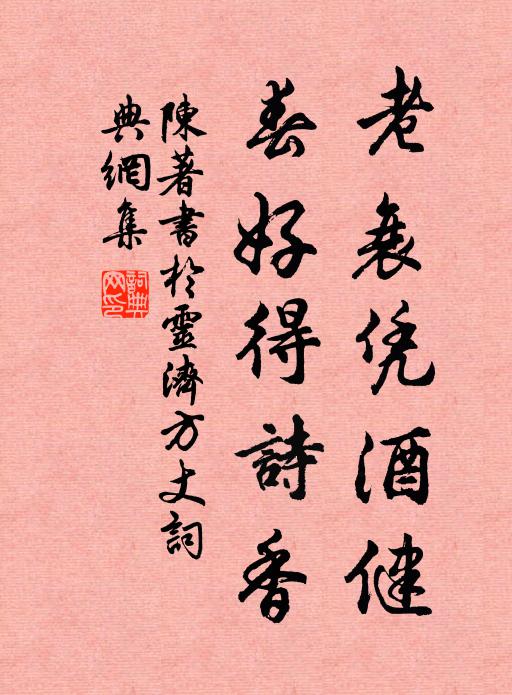 老衰凭酒健
春好得詩香
陳著書於靈濟方丈詞
典網集
詞典網印